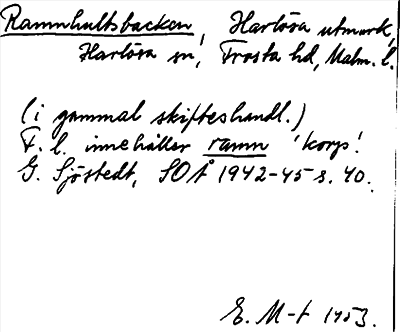 Ramnhultsbacken, Harlösa utmark,
Harlösa sn, Frosta hd, Malm. l.
(i gammal skifteshandl.)
F. l. innehåller ramn 'korp'.
G. Sjöstedt, SOÅ 1942-45 s. 40.
E. M-t 1953.